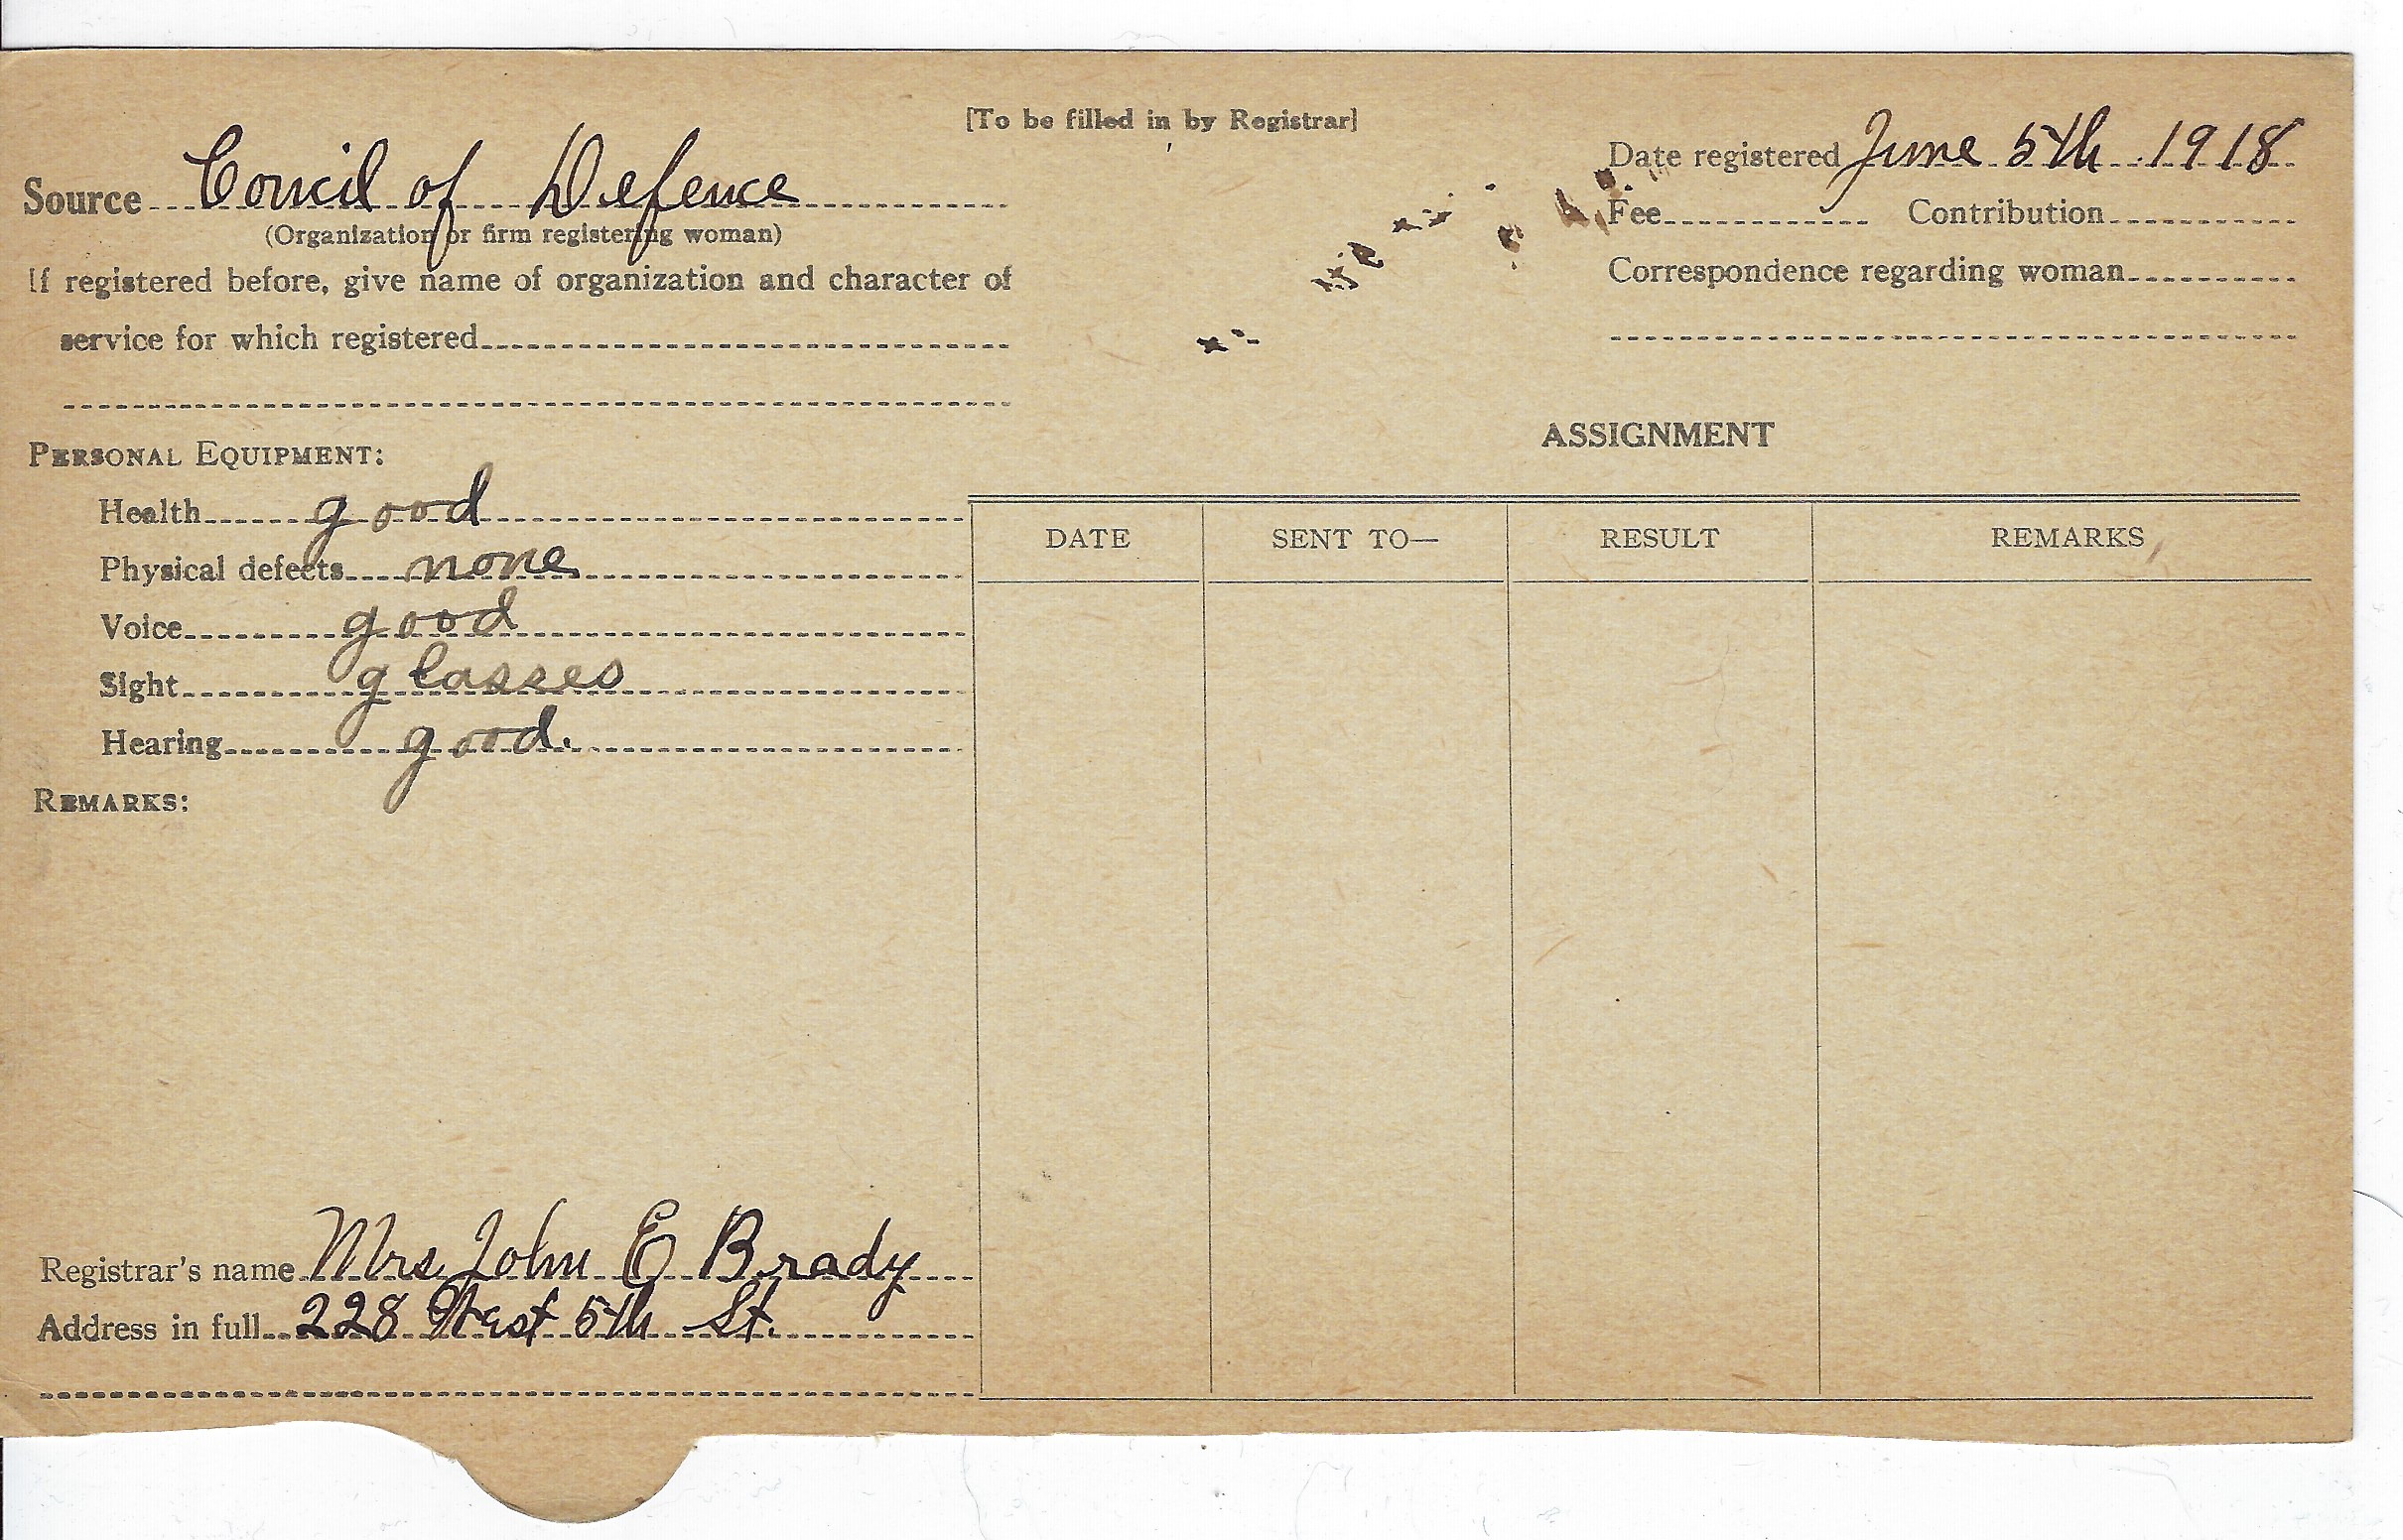 [To be filled in by Registrar]
Source Concil of Defence
(Organization or firm registering woman)
If registered before, give name of organization and character of
service for which registered
Date registered June 5th 1918
Fee Contribution
Correspondence regarding woman
PERSONAL EQUIPMENT:
Health good
Physical defects none
Voice good
Sight glasses
Hearing good.
REMARKS:
Registrar's name Mrs John E Brady
Address in full 228 West 5th St.
ASSIGNMENT
DATE SENT TO— RESULT REMARKS